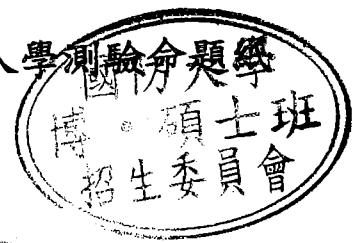 學測驗命題紙
國防大學
博、碩士班
招生委員會